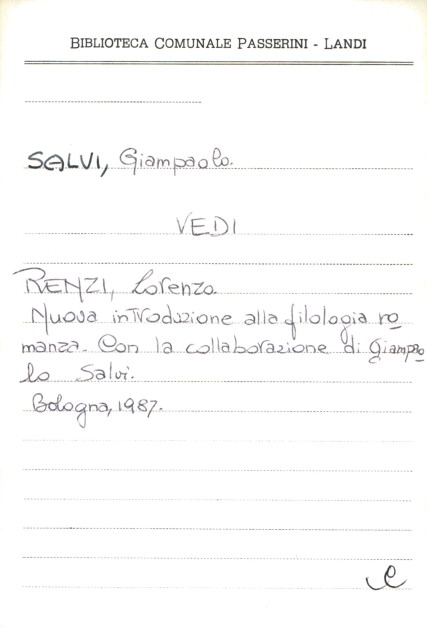 BIBLIOTECA COMUNALE PASSERINI - LANDI
SALVI, Giampaolo.
VEDI
RENZI, Lorenzo.
Nuova introduzione alla filologia ro
manza. Con la collaborazione di Giampao
lo Salvi.
Bologna, 1987.